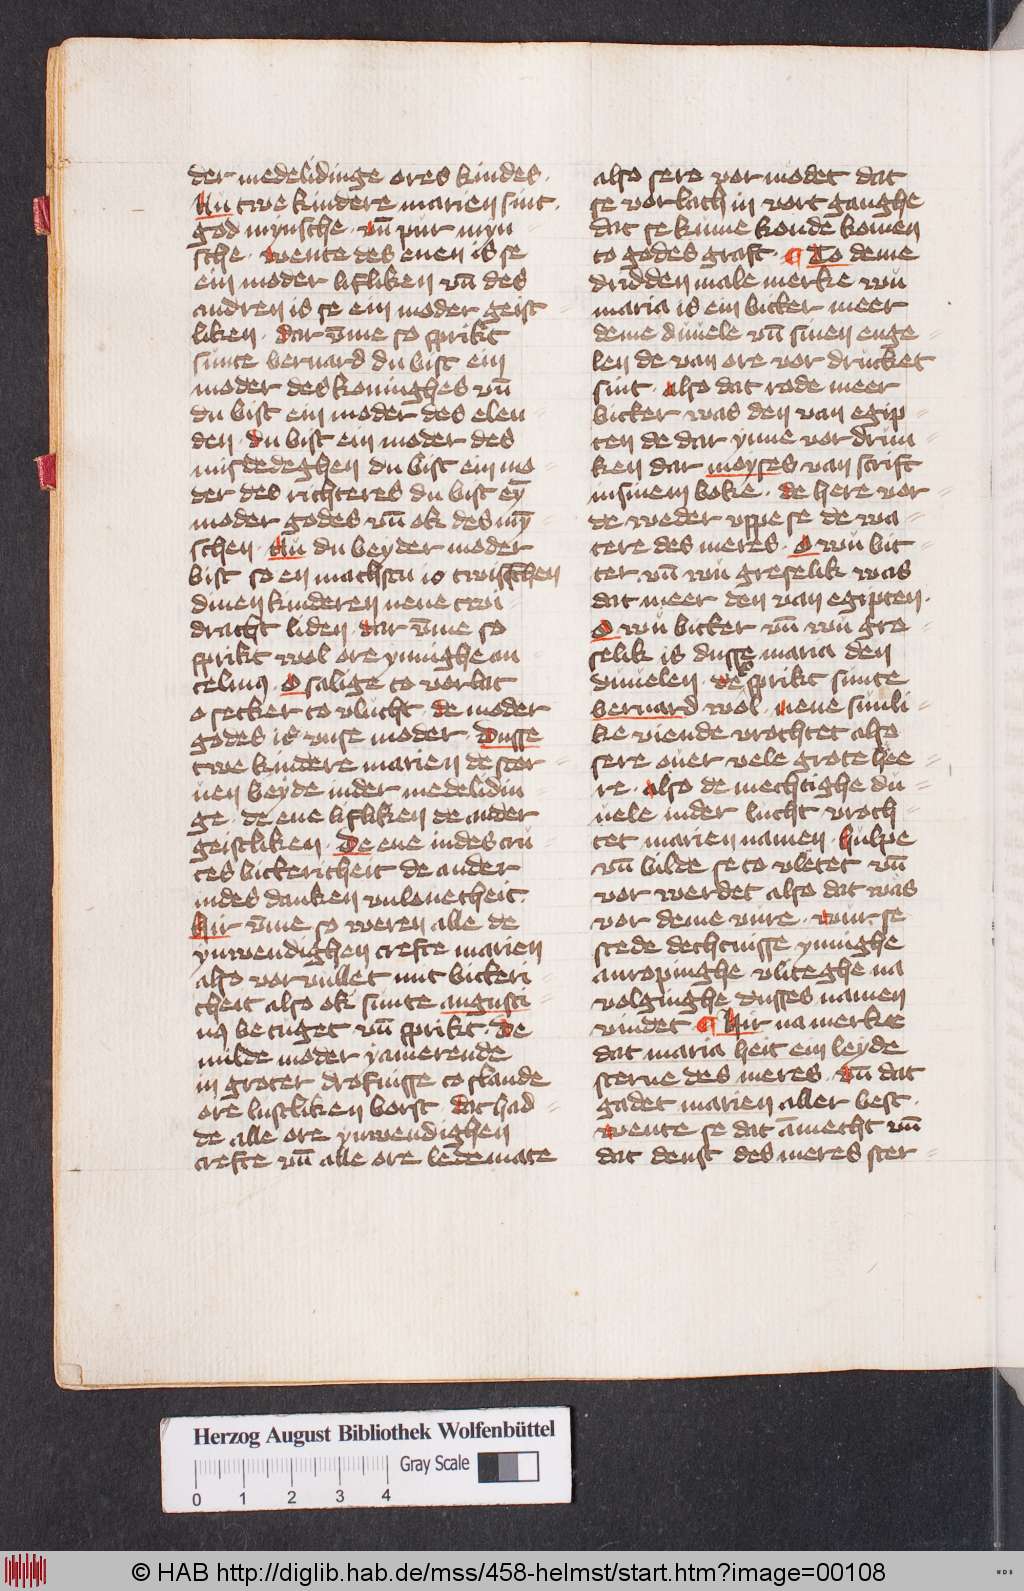 der medelidinge ores kindes.
Nu twe kindere marien sint.
god mynsche. vn̄ pur myn
sche. wente des enen is se
ein moder lifliken vn̄ des
andren is se ein moder geist
liken. dar v̄me so sprikt
sunte bernard du bist ein
moder des koninghes vn̄
du bist ein moder des elen
den. du bist ein moder des
misdedeghen du bist ein mo-
der des richteres du bist eȳ
moder godes vn̄ ok des mȳ
schen. Nu du beyder moder
bist so en machstu io twisschen
dinen kinderen nene twi-
dracht liden. dar v̄me so
sprikt wol ore ynnighe an
celmꝰ. O salige to vorlat
o secker to vlucht. de moder
godes is vnse moder Dusse
twe kindere marien de stor-
uen beyde in der medelidin
ge. de ene lifliken de ander
geistliken. De ene in des cru-
ces bittericheit de ander
in des danken vulouetheit.
Hir v̄me so weren alle de
ynwendighen crefte marien
also voruullet mit bitteri-
cheit also ok sunte augusti-
nꝰ betuget vn̄ sprikt. de
milde moder yamerende
in groter drofnisse to slande
ore lustliken borst. dat had-
de alle ore ynwendighen
crefte vn̄ alle ore ledemate
also sere vor modet dat
se vorlach in vort ganghe
dat se kume konde komen
to godes graft. ¶ To deme
drudden male merke wu
maria is ein bitter meer
deme duuele vn̄ sinen enge-
len de van ore vor drucket
sint. also dat rode meer
bitter was den van egip-
ten de dar ynne vordrun-
ken dar moyses van scrift
in sinem boke. de here vor-
de weder vppe se de wa-
tere des meres. O wu bit-
ter vn̄ wu greselik was
dat meer den van egipten.
O wu bitter vn̄ wu gre-
selik is dusse maria den
duuelen. des sprikt sunte
bernard wol. nene sunli-
ke viende vrochtet also
sere ouer vele grote hee-
re. also de mechtighe du-
uele in der lucht vroch-
tet marien namen. hulpe
vn̄ bilde se to vletet vn̄
vor werdet also dat was
vor deme vure. wur se
stede dechtnisse ynnighe
anropinghe vliteghe na
volginghe dusses namen
vindet ¶ Hir na merke
dat maria heit ein leyde
sterne des meres. vn̄ dat
gadet marien aller best.
wente se dat āmecht vn̄
dat denst des meres ster-
Herzog August Bibliothek Wolfenbüttel
Gray Scale
0 1 2 3 4
© HAB http://diglib.hab.de/mss/458-helmst/start.htm?image=00108